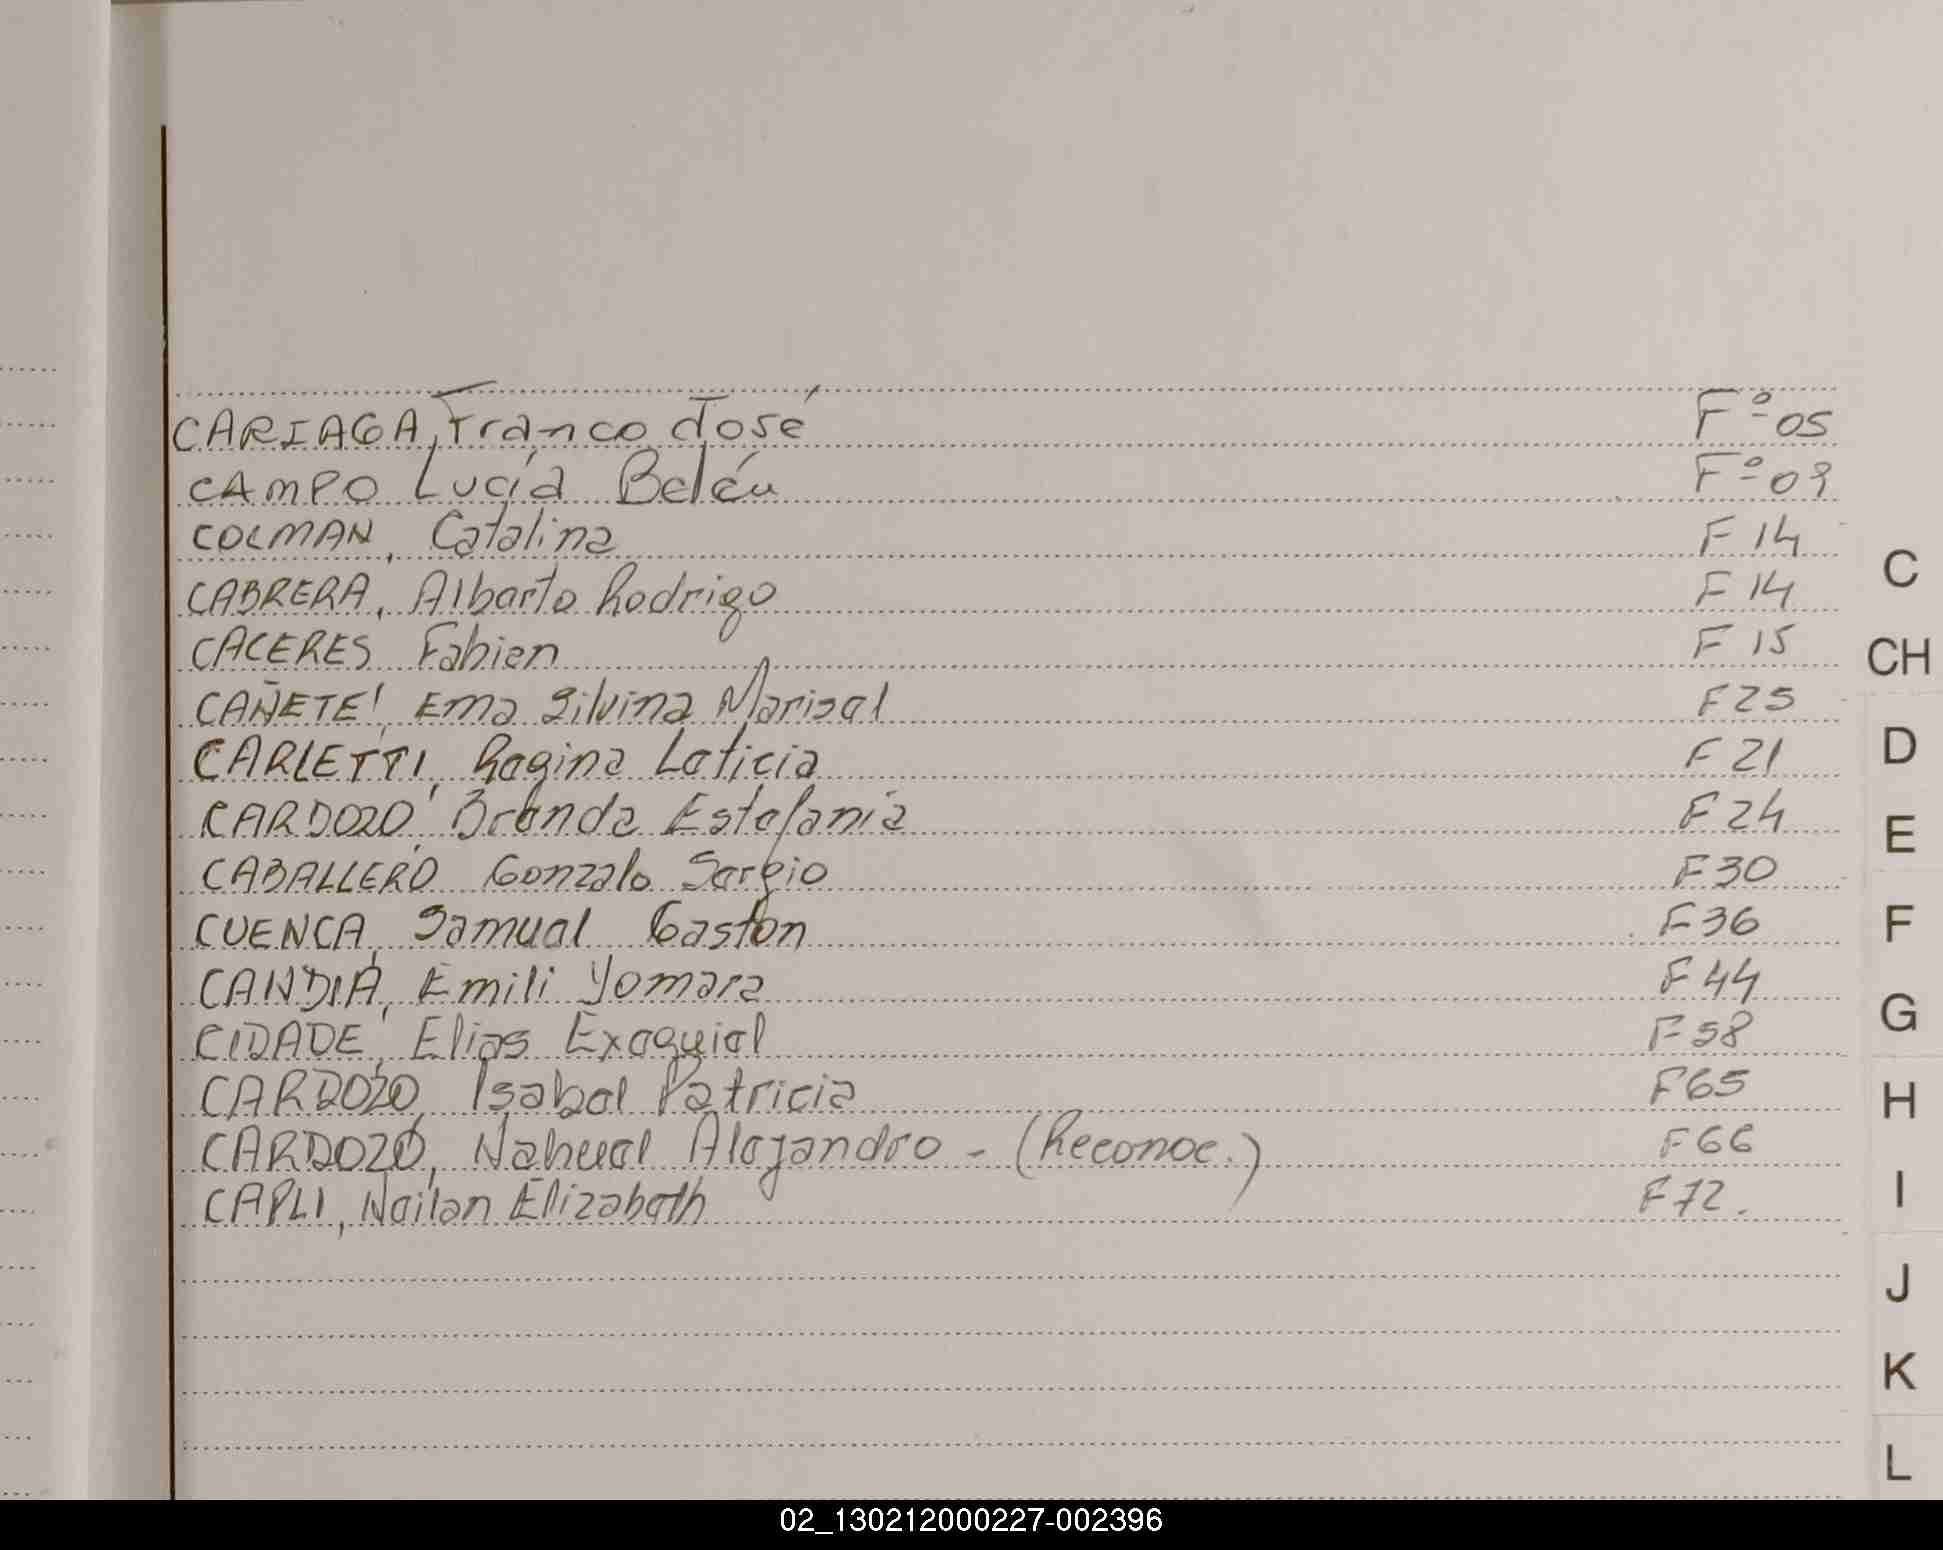 CARIAGA, Franco José F° 05
CAMPO Lucía Belén F° 09
COLMAN, Catalina F 14
CABRERA, Alberto Rodrigo F 14
CACERES Fabien F 15
CAÑETE, Ema Silvina Marisel F 25
CARLETTI, Regina Leticia F 21
CARDOZO, Brenda Estefanía F 24
CABALLERO Gonzalo Sergio F 30
CUENCA, Samuel Gaston F 36
CANDIA, Emili Yomara F 44
CIDADE, Elias Exequiel F 58
CARDOZO, Isabel Patricia F 65
CARDOZO, Nahuel Alejandro - (Reconoc.) F 66
CAPLI, Nailen Elizabeth F 72.
C
CH
D
E
F
G
H
I
J
K
L
02_130212000227-002396